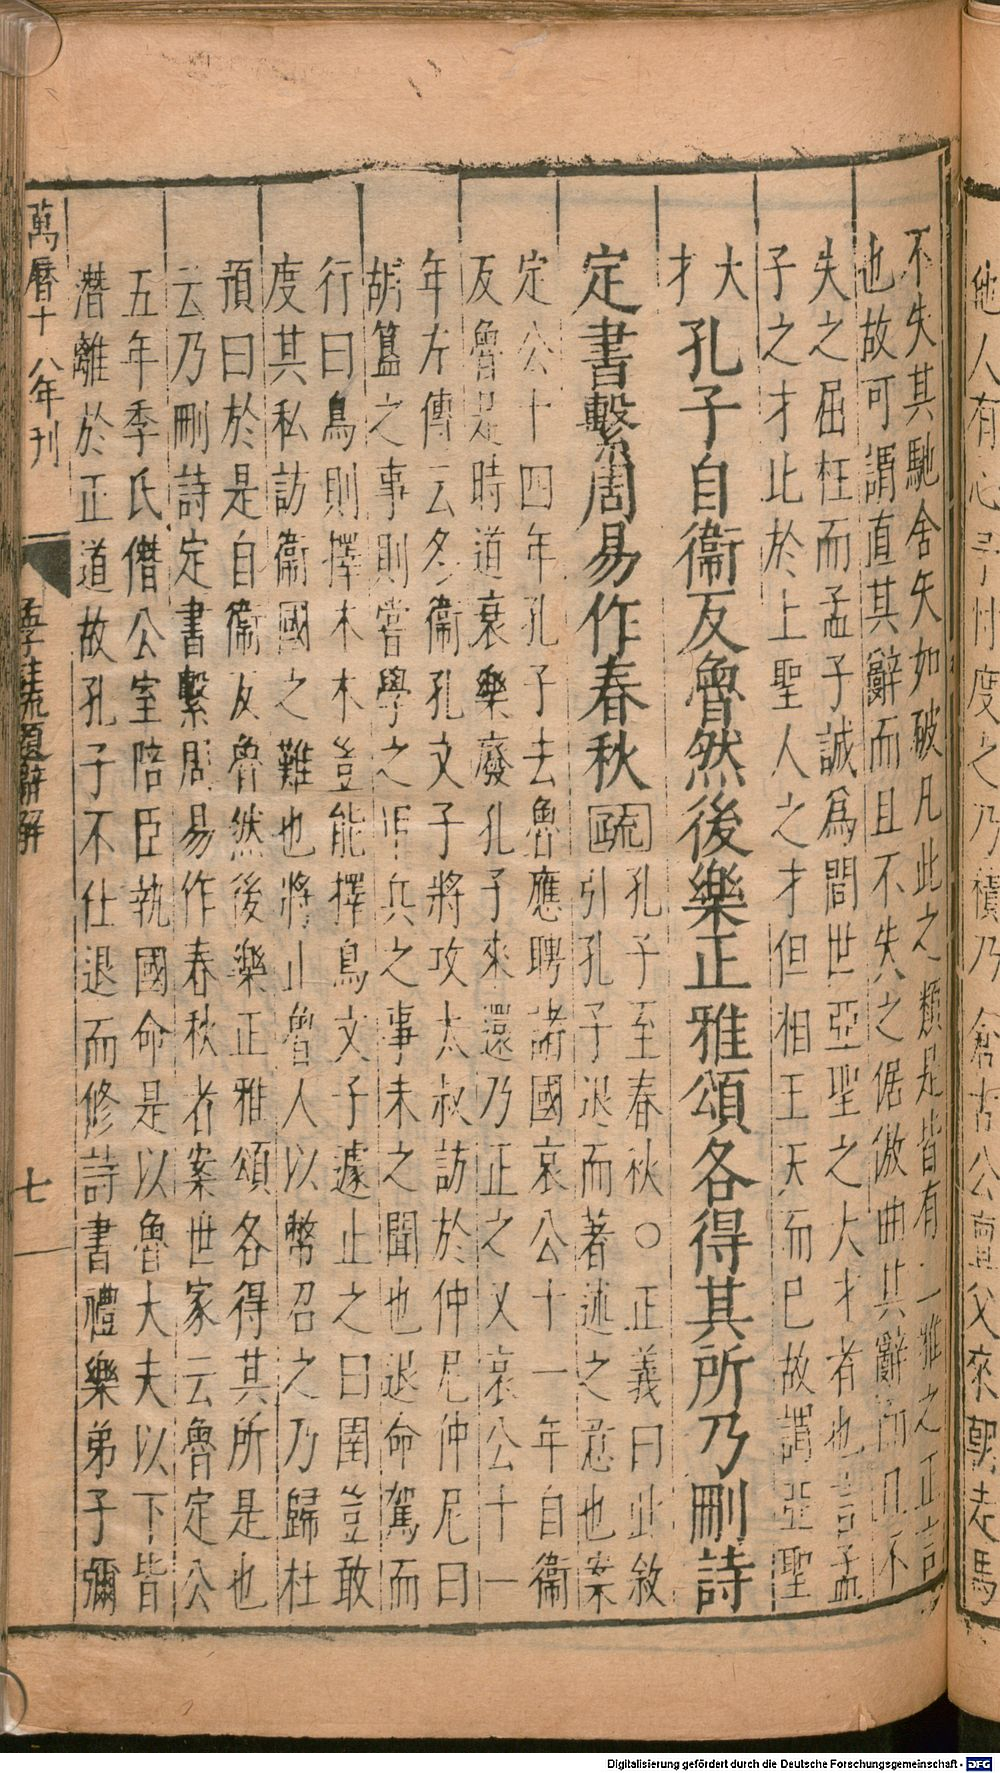 不失其馳舍矢如破凡此之類是皆有二雅之正言
也故可謂直其辭而且不失之倨傲曲其辭而且不
失之屈枉而孟子誠為間世亞聖之大才者也言孟
子之才比於上聖人之才但相王天而已故謂亞聖
大
才
孔子自衞反魯然後樂正雅頌各得其所乃刪詩
定書繫周易作春秋
疏
孔子至春秋○正義曰此敘
引孔子退而著述之意也案
定公十四年孔子去魯應聘諸國哀公十一年自衞
反魯是時道衰樂廢孔子來還乃正之又哀公十一
年左傳云冬衞孔文子將攻太叔訪於仲尼仲尼曰
胡簋之事則嘗學之甲兵之事未之聞也退命駕而
行曰鳥則擇木木豈能擇鳥文子遽止之曰圉豈敢
度其私訪衞國之難也將止魯人以幣召之乃歸杜
預曰於是自衞反魯然後樂正雅頌各得其所是也
云乃刪詩定書繫周易作春秋者案世家云魯定公
五年季氏僭公室陪臣執國命是以魯大夫以下皆
潛離於正道故孔子不仕退而修詩書禮樂弟子彌
萬曆十八年刊
孟子註疏題辭解
七
他人有心予忖度之乃積乃倉古公亶父來朝走馬
Digitalisierung gefördert durch die Deutsche Forschungsgemeinschaft - DFG